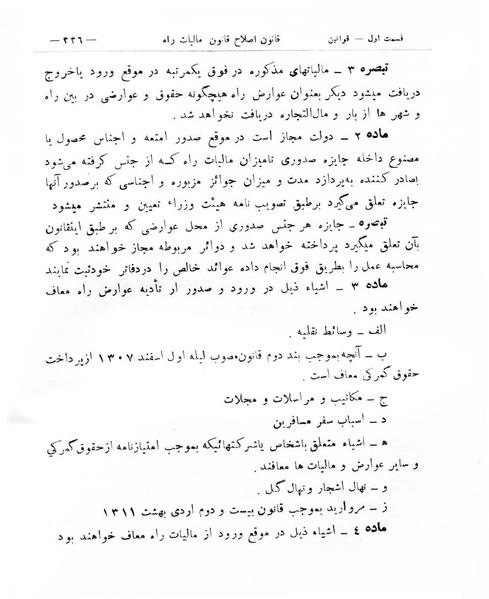 قسمت اول — قوانین قانون اصلاح قانون مالیات راه — ۲۲۶ —
تبصره ۳ ــ مالیاتهای مذکوره در فوق یکمرتبه در موقع ورود یاخروج
دریافت میشود دیگر بعنوان عوارض راه هیچگونه حقوق و عوارضی در بین راه
و شهر ها از بار و مال‌التجاره دریافت نخواهد شد .
ماده ۲ ــ دولت مجاز است در موقع صدور امتعه و اجناس محصول یا
مصنوع داخله جایزه صدوری تامیزان مالیات راه که از جنس گرفته می‌شود
بصادر کننده به‌پردازد مدت و میزان جوائز مزبوره و اجناسی که برصدور آنها
جایزه تعلق می‌گیرد برطبق تصویب نامه هیئت وزراء تعیین و منتشر میشود
تبصره ــ جایزه هر جنس صدوری از محل عوارضی که بر طبق اینقانون
بآن تعلق میگیرد پرداخته خواهد شد و دوائر مربوطه مجاز خواهند بود که
محاسبه عمل را بطریق فوق انجام داده عوائد خالص را دردفاتر خودثبت نمایند
ماده ۳ ــ اشیاء ذیل در ورود و صدور از تأدیه عوارض راه معاف
خواهند بود .
الف ــ وسائط نقلیه .
ب ــ آنچه بموجب بند دوم قانون‌مصوب لیله اول اسفند ۱۳۰۷ ازپرداخت
حقوق گمرکی معاف است .
ج ــ مکاتیب و مراسلات و مجلات
د ــ اسباب سفر مسافرین
ه ــ اشیاء متعلق باشخاص یاشرکتهائیکه بموجب امتیازنامه ازحقوق گمرکی
و سایر عوارض و مالیات ها معافند .
و ــ نهال اشجار و نهال گل .
ز ــ مروارید بموجب قانون بیست و دوم اردی بهشت ۱۳۱۱
ماده ٤ ــ اشیاء ذیل در موقع ورود از مالیات راه معاف خواهند بود